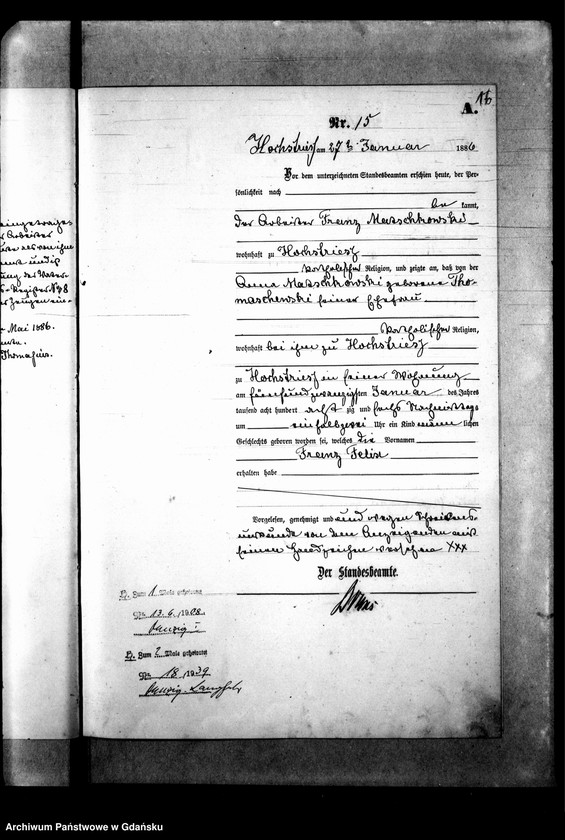 16
A.
Nr. 15
Hochstrieß am 27ten Januar 1886
Vor dem unterzeichneten Standesbeamten erschien heute, der Per-
sönlichkeit nach
be kannt,
der Arbeiter Franz Matschkowski
wohnhaft zu Hochstrieß
katholischer Religion, und zeigte an, daß von der
Anna Matschkowski geborene Tho-
maschewski seiner Ehefrau
katholischer Religion,
wohnhaft bei ihm zu Hochstrieß
zu Hochstrieß in seiner Wohnung
am fünfundzwanzigsten Januar des Jahres
tausend acht hundert acht zig und sechs Nachmittags
um ein halb zwei Uhr ein Kind männ lichen
Geschlechts geboren worden sei, welches die Vornamen
Franz Felix
erhalten habe
Vorgelesen, genehmigt und und wegen Schreibens-
unkunde von dem Anzeigenden mit
seinem Handzeichen versehen XXX
Der Standesbeamte.
Eh. Zum 1 Male geheiratet
Nr. 13.6./1908
Danzig I
Eh. Zum 2 Male geheiratet
Nr. 18/1939
Danzig-Langfuhr
eingetragen
Arbeiter
des Vater
Register No 8
Zeugen ein-
Mai 1886.
Archiwum Państwowe w Gdańsku